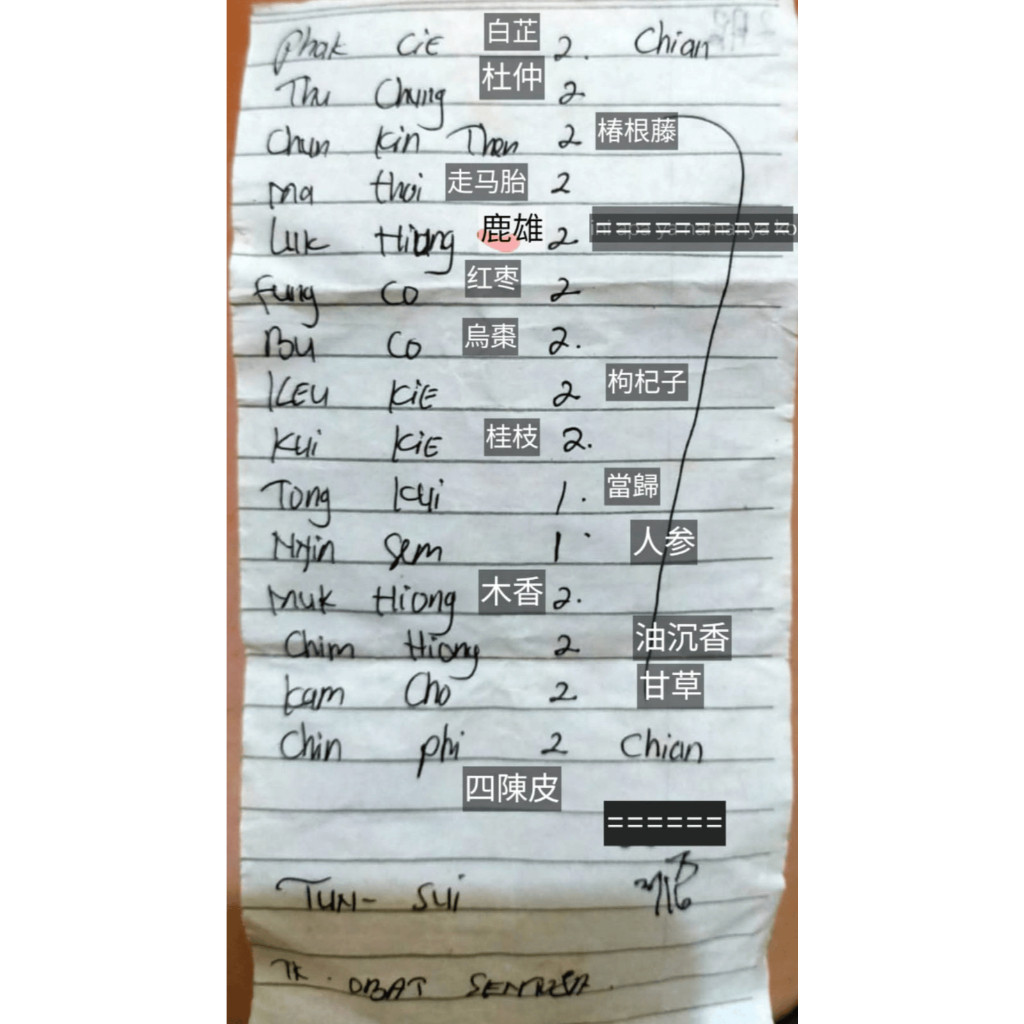 Phak Cie 白芷 2. Chian
Thu Chung 杜仲 2
Chun Kin Then 2 椿根藤
Ma thoi 走马胎 2
Luk Hiong 鹿雄 2
Fung Co 红枣 2
Bu Co 烏棗 2.
KEU KiE 2 枸杞子
Kui KiE 桂枝 2.
Tong Kui 1. 當歸
Nyin Sem 1 人参
Muk Hiong 木香 2.
Chim Hiong 2 油沉香
Kam Cho 2 甘草
Chin phi 2 Chian
四陳皮
======
TUN- SUI
TK. OBAT